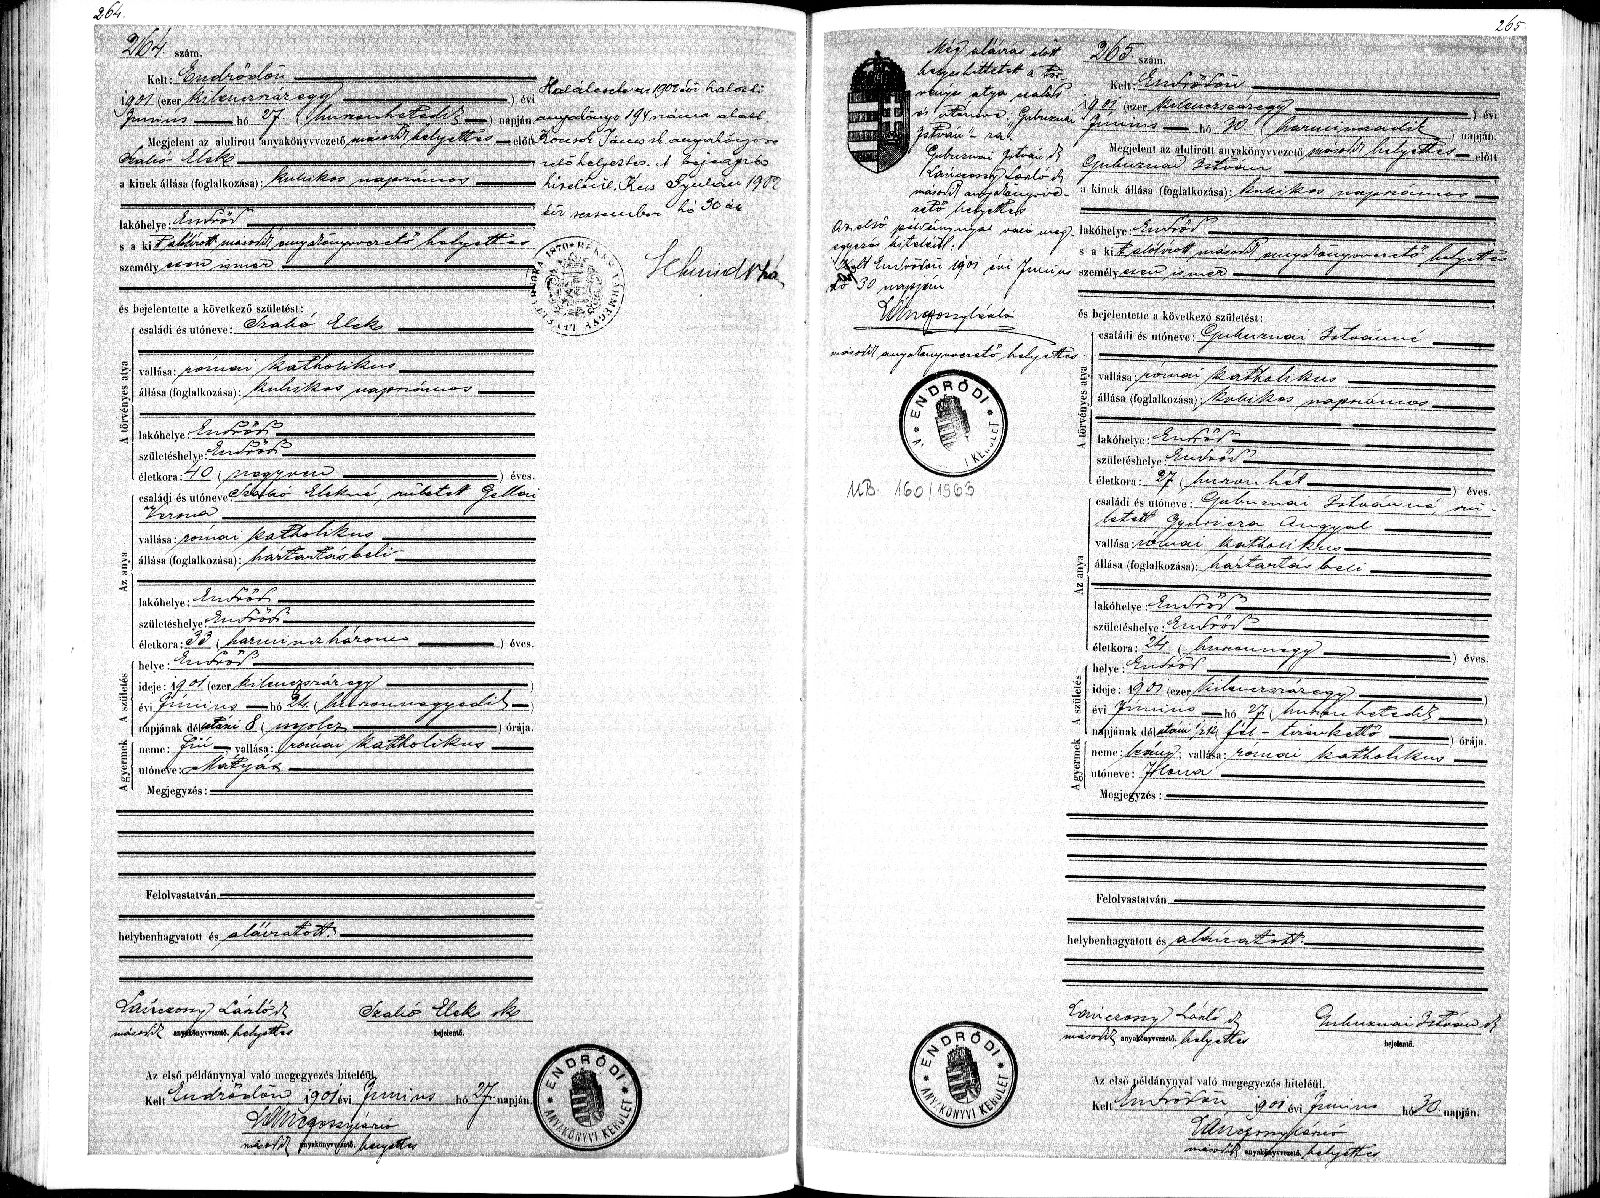 264.
264. szám.
Kelt: Endrődön
1901 (ezer kilenczszáz egy) évi
Június hó 27 (huszonhetedik) napján
Megjelent az alulirott anyakönyvvezető második helyettes előtt
Szabó Elek
a kinek állása (foglalkozása): kubikos napszámos
lakóhelye: Endrőd
s a kit alólirott második anyakönyvvezető helyettes
személyesen ismer
és bejelentette a következő születést:
A törvényes atya
családi és utóneve: Szabó Elek
vallása: római katholikus
állása (foglalkozása): kubikos napszámos
lakóhelye: Endrőd
születéshelye: Endrőd
életkora: 40 (negyven) éves.
Az anya
családi és utóneve Szabó Elekné, született Gellai
Verona
vallása: római katholikus
állása (foglalkozása): háztartásbeli
lakóhelye: Endrőd
születéshelye Endrőd
életkora: 33 (harminczhárom) éves.
A születés
helye: Endrőd
ideje: 1901 (ezer kilenczszáz egy)
évi Június hó 24 (huszonnegyedik)
napjának délutáni 8 (nyolcz) órája.
A gyermek
neme: fiú, vallása: római katholikus
utóneve: Mátyás
Megjegyzés:
Felolvastatván
helybenhagyatott és aláiratott.
Lánczony László sk Szabó Elek sk
második anyakönyvvezető. helyettes bejelentő.
Az első példánynyal való megegyezés hiteléül.
Kelt Endrődön 1901 évi Június hó 27. napján.
Lánczony László
második anyakönyvvezető. helyettes
ENDRŐDI
ANYAKÖNYVI KERÜLET
1902 évi haláloz:
anyakönyv 194 száma alatt
János sk anyakönyvve-
zető helyettes. A bejegyzés
hiteléül. Kelt Gyulán 1902
évi november hó 30 án
BÉKÉSVÁRMEGYE LEVÉLTÁRA 1870
265
265. szám.
Kelt: Endrődön
1901 (ezer kilenczszázegy) évi
Június hó 30 (harminczadik) napján.
Megjelent az alulirott anyakönyvvezető második helyettes előtt
Gubuznai István
a kinek állása (foglalkozása): kubikos napszámos
lakóhelye: Endrőd
s a kit alólirott második anyakönyvvezető helyettes
személyesen ismer
és bejelentette a következő születést:
A törvényes atya
családi és utóneve: Gubuznai Istvánné
vallása: római katholikus
állása (foglalkozása): kubikos napszámos
lakóhelye: Endrőd
születéshelye Endrőd
életkora: 27 (huszonhét) éves.
Az anya
családi és utóneve: Gubuznai Istvánné szü-
letett Gyuricza Angyal
vallása: római katholikus
állása (foglalkozása): háztartásbeli
lakóhelye: Endrőd
születéshelye: Endrőd
életkora: 24 (huszonnégy) éves.
A születés
helye: Endrőd
ideje: 1901 (ezer kilenczszáz egy)
évi Június hó 27 (huszonhetedik)
napjának délutáni 1/2 12 fél-tizenkettő órája.
A gyermek
neme: leány, vallása: római katholikus
utóneve: Ilona
Megjegyzés:
Felolvastatván
helybenhagyatott és aláiratott.
Lánczony László sk Gubuznai István sk
második anyakönyvvezető. helyettes bejelentő.
Az első példánynyal való megegyezés hiteléül.
Kelt Endrődön 1901 évi Június hó 30 napján.
Lánczony László
második anyakönyvvezető. helyettes
ENDRŐDI
ANYAKÖNYVI KERÜLET
Még aláirás előtt
helyesbittetett a tör-
vényes atya családi
és utóneve Gubuznai
István" ra
Gubuznai István sk
Lánczony László sk
második anyakönyvve-
zető helyettes
Az első példánynyal való meg-
egyezés hiteléül.
Kelt Endrődön 1901 évi Június
hó 30 napján
Lánczony László
második anyakönyvvezető helyettes
ENDRŐDI
A KERÜLET
MB. 160/1963